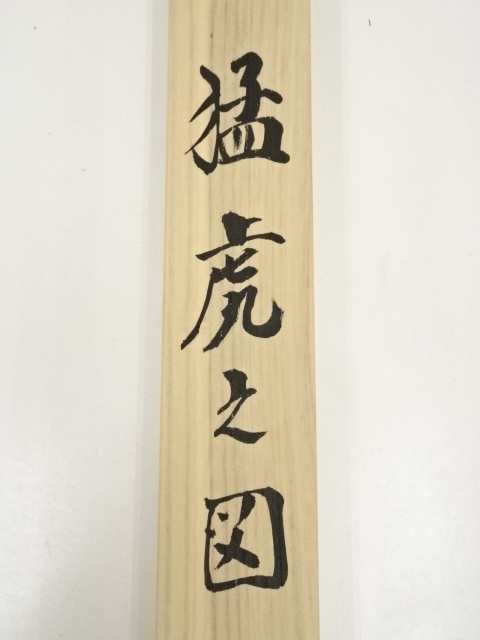 猛虎之図